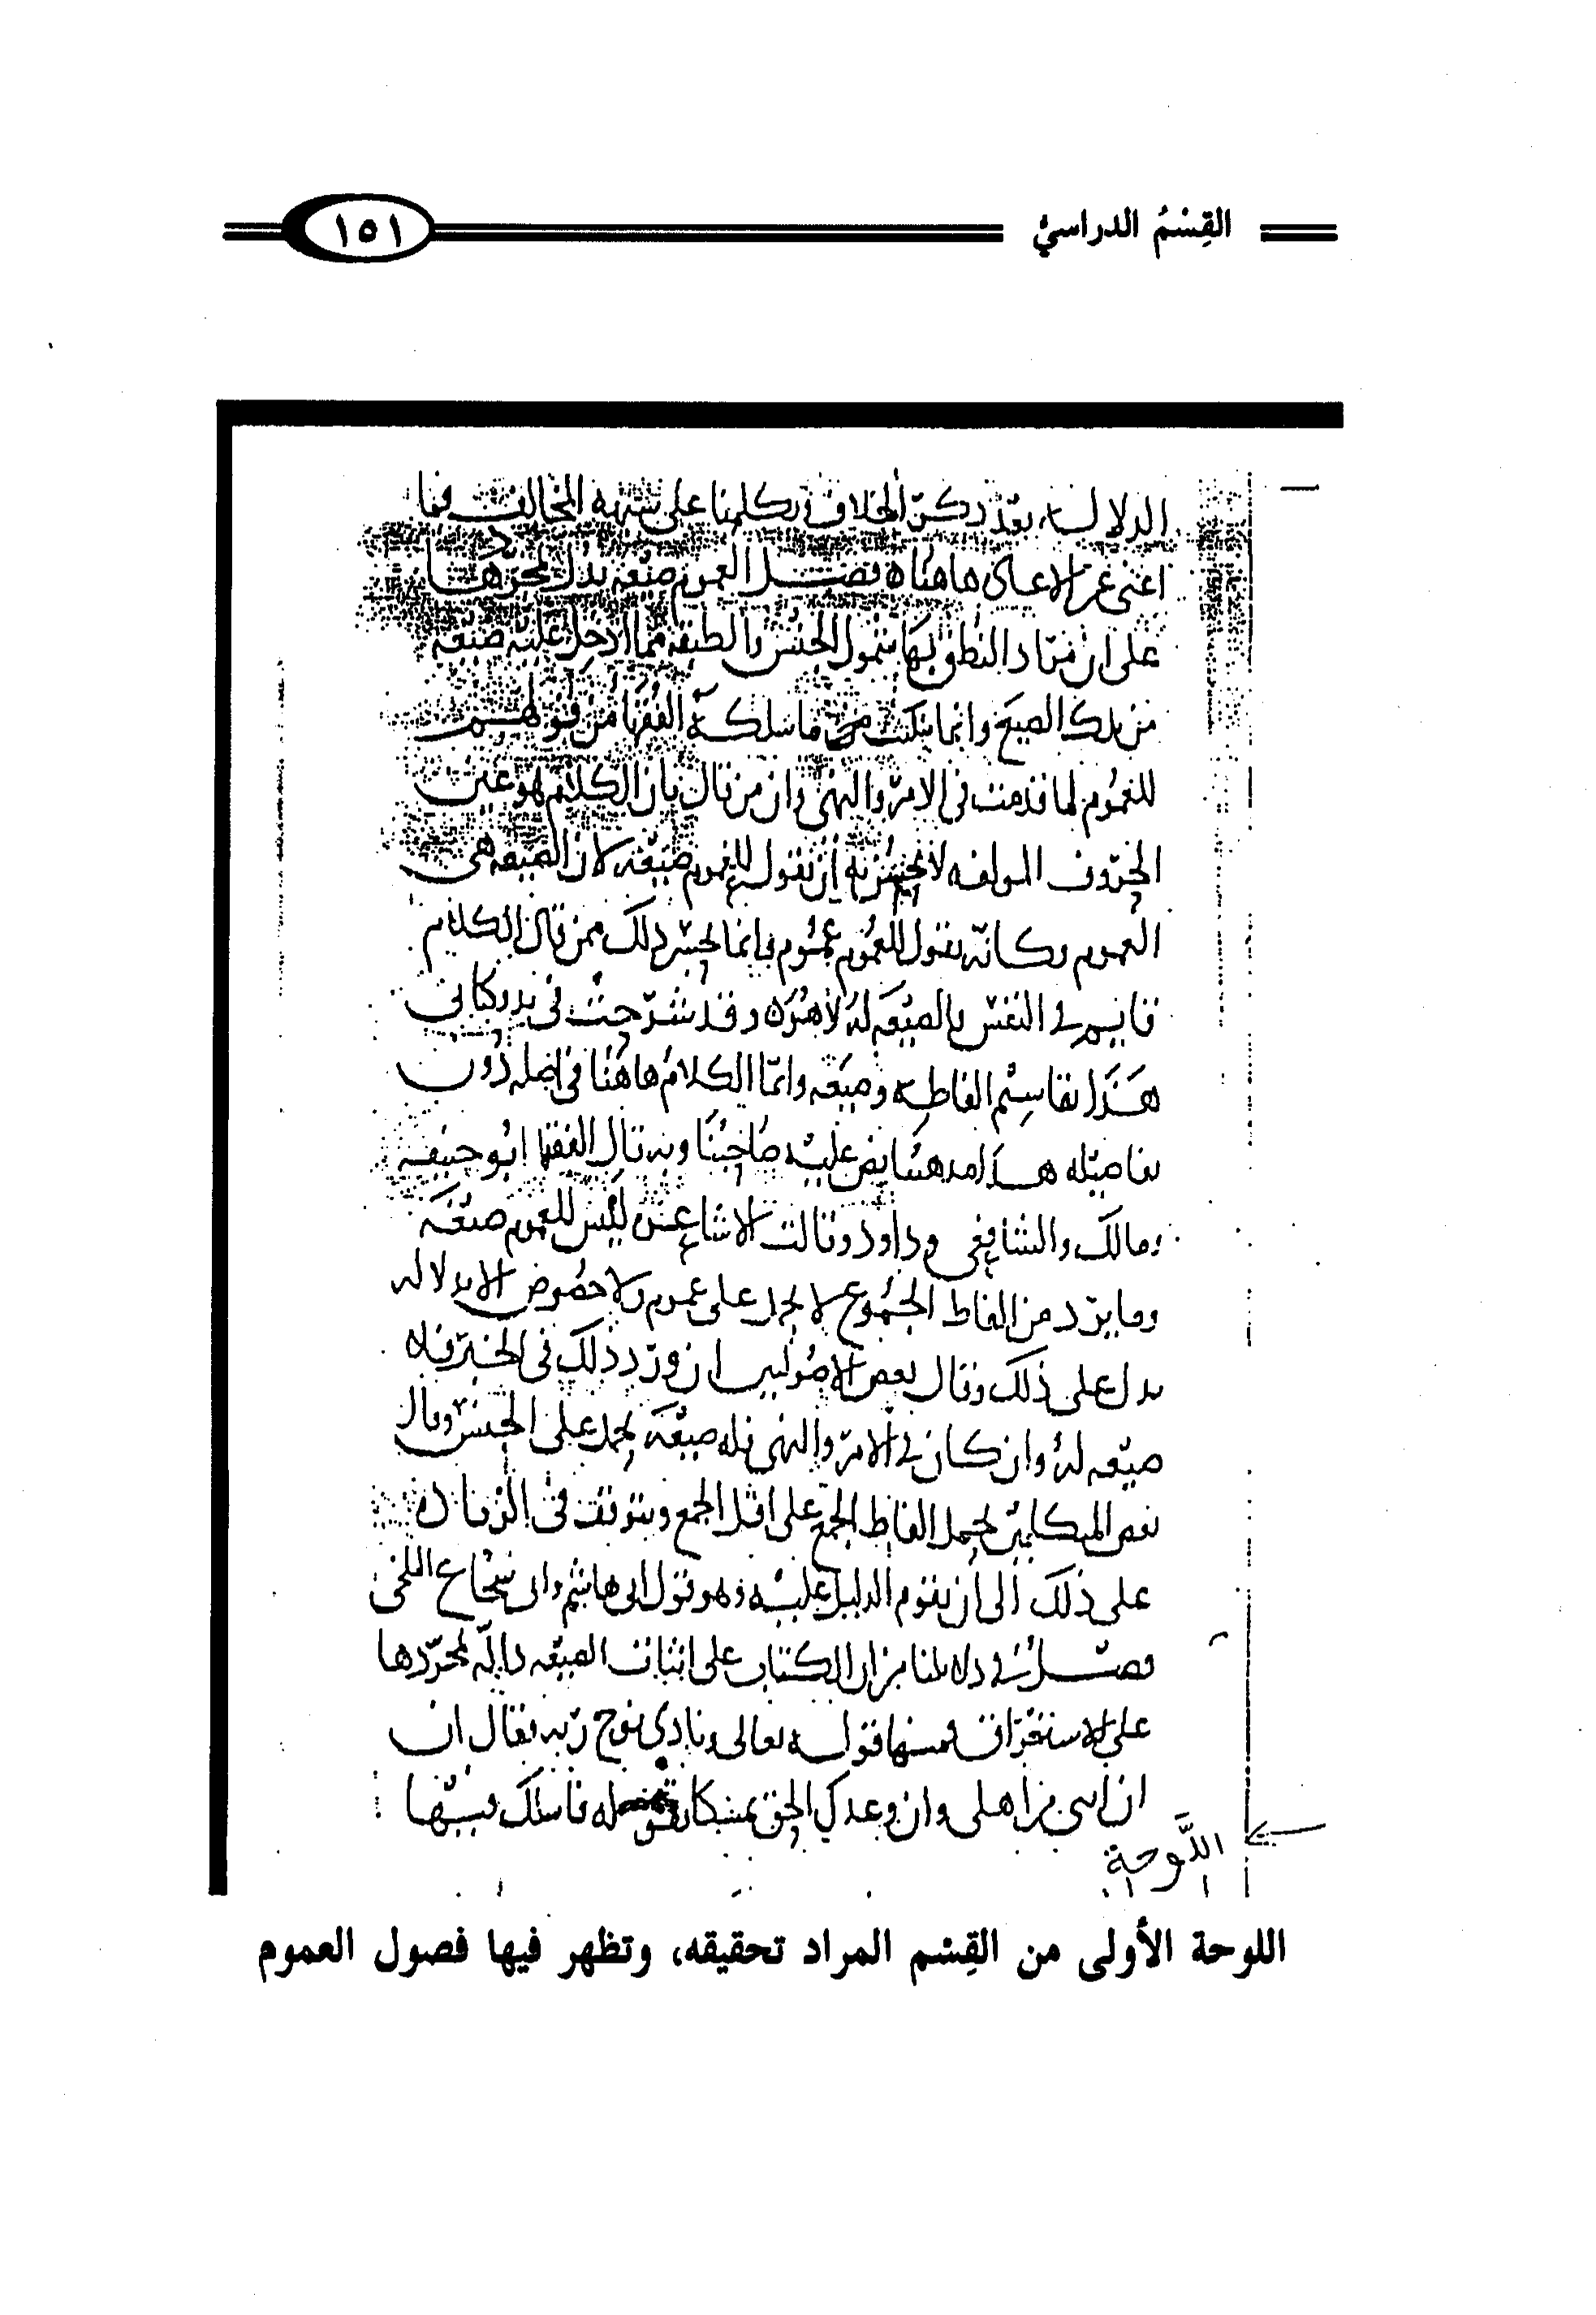 القِسْمُ الدراسيُّ
١٥١
الدلالة بعد ذكر الخلاف وتكلمنا على شبهة المخالف فما
اغنى عن الاعادة هاهنا فصل العموم صيغه تدل بمجردها
على ان مراد النطق بها شمول الجنس والطبقة مما ادخل عليه صيغه
من تلك الصيغ وانما نكبت عن ما سلكه الفقها من قولهم
للعموم لما قدمت فى الامر والنهى وان من قال بان الكلام هو عين
الحروف المولفه لا يحسن به ان يقول للعموم صيغه لان الصيغه هى
العموم وكانه يقول للعموم عموم وانما يحسن ذلك ممن قال الكلام
قايم في النفس والصيغه له لا هو وقد شرحت فى كتابى
هذا تقاسيم الفاظه وصيغه وانما الكلام هاهنا فى اصله دون
تفاصيله هذا مذهبنا نص عليه صاحبنا وبه قال الفقها ابو حنيفه
ومالك والشافعى وداود وقالت الاشاعره ليس للعموم صيغه
وما يرد من الفاظ الجموع لا يحمل على عموم ولا خصوص الا بدلاله
تدل على ذلك وقال بعض الاصوليين ان ورد ذلك فى الخبر فلا
صيغه له وان كان في الامر والنهى فله صيغه تحمل على الجنس وقال
بعض المتكلمين يحمل الفاظ الجمع على اقل الجمع ويتوقف فى الزياده
على ذلك الى ان يقوم الدليل عليه وهو قول ابى هاشم وابن شجاع الثلجى
فصل في دلايلنا من الكتاب على اثبات الصيغه داله بمجردها
على الاستغراق فمنها قوله تعالى ونادى نوح ربه فقال رب
ان ابنى من اهلى وان وعدك الحق تمسكا بقوله فاسلك فيها
اللَّوحة
١
اللوحة الأولى من القِسْم المراد تحقيقه، وتظهر فيها فصول العموم